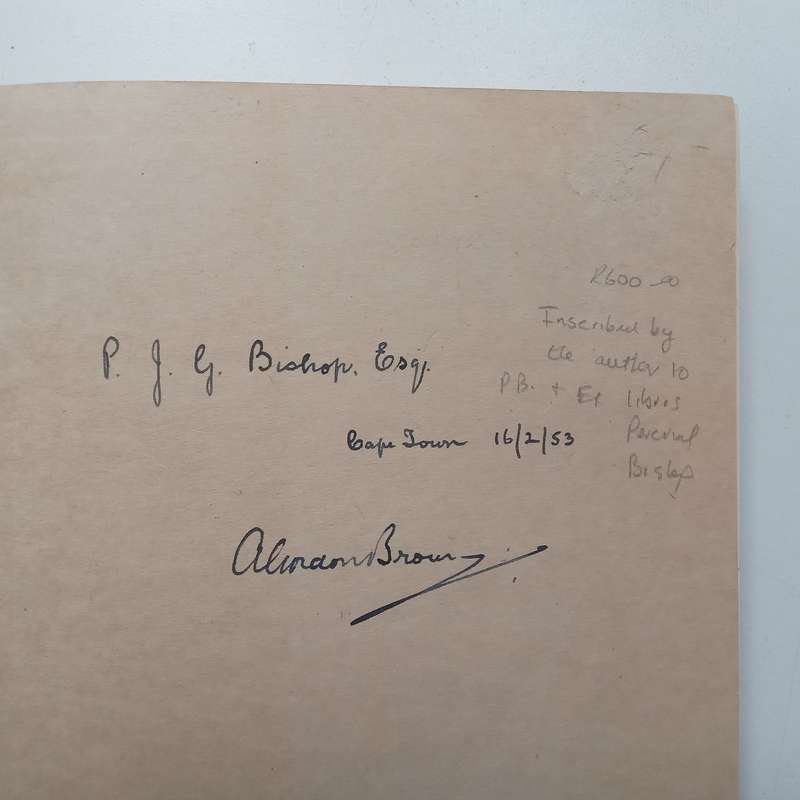 R600.00
Inscribed by
the author to
P.B. + Ex libris
Percival
Bishop
P. J. G. Bishop, Esq.
Cape Town 16/2/53
A Gordon Brown